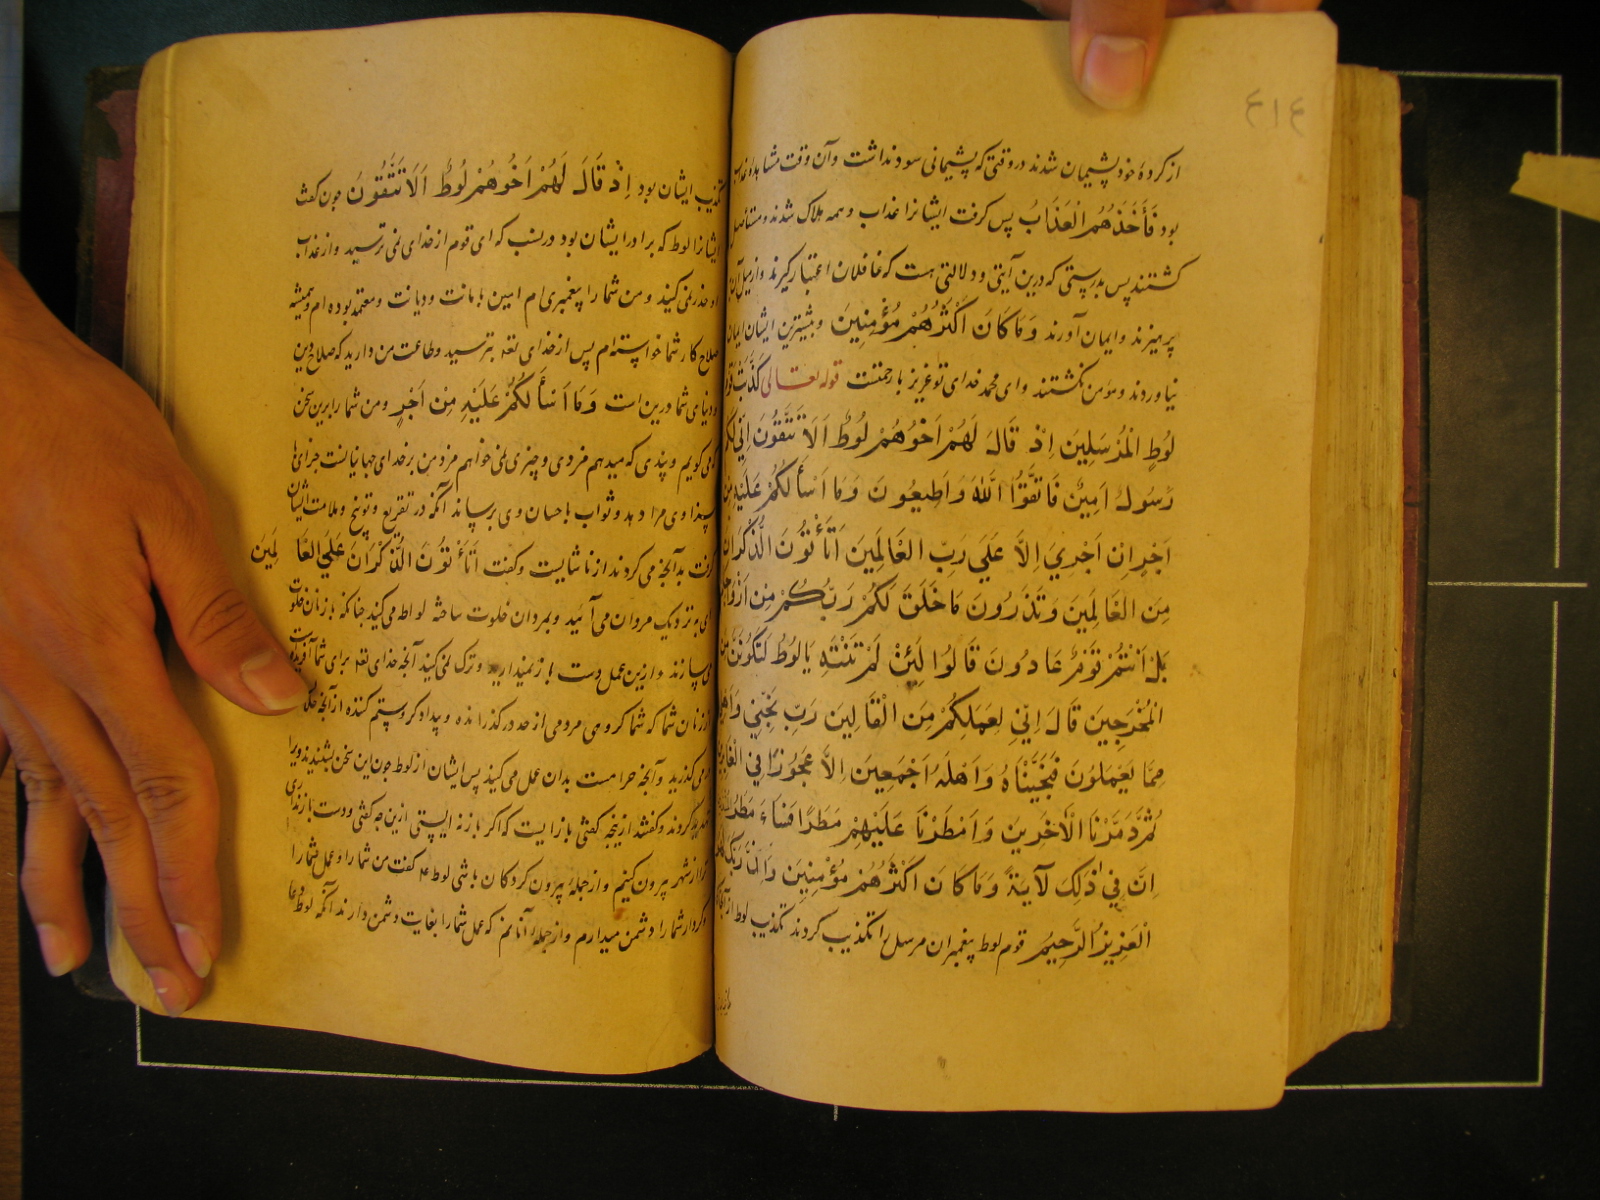 ۴۱۴
از کردهٔ خود پشیمان شدند در وقتی که پشیمانی سود نداشت و آن وقت مشاهدهٔ عذاب
بود فَأَخَذَهُمُ الْعَذَابُ پس گرفت ایشانرا عذاب و همه هلاک شدند و مستأصل
کشتند پس بدرستی که درین آیتی و دلالتی هست که غافلان اعتبار گیرند و از
پرهیزند و ایمان آورند وَمَا كَانَ اَكْثَرُهُمْ مُؤْمِنِينَ و بیشترین ایشان ایمان
نیاوردند و مؤمن نکشتند و ای محمد خدای تو عزیز با رحمتست قوله تعالی كَذَّبَتْ قَوْمُ
لُوطٍ الْمُرْسَلِينَ اِذْ قَالَ لَهُمْ اَخُوهُمْ لُوطٌ اَلَا تَتَّقُونَ اِنِّي لَكُمْ
رَسُولٌ اَمِينٌ فَاتَّقُوا اللّٰهَ وَاَطِيعُونَ وَمَا اَسْأَلُكُمْ عَلَيْهِ مِنْ
اَجْرٍ اِنْ اَجْرِيَ اِلَّا عَلَي رَبِّ الْعَالَمِينَ اَتَأْتُونَ الذُّكْرَانَ
مِنَ الْعَالَمِينَ وَتَذَرُونَ مَا خَلَقَ لَكُمْ رَبُّكُمْ مِنْ اَزْوَاجِكُمْ
بَلْ اَنْتُمْ قَوْمٌ عَادُونَ قَالُوا لَئِنْ لَمْ تَنْتَهِ يَا لُوطُ لَتَكُونَنَّ مِنَ
الْمُخْرَجِينَ قَالَ اِنِّي لِعَمَلِكُمْ مِنَ الْقَالِينَ رَبِّ نَجِّنِي وَاَهْلِي
مِمَّا يَعْمَلُونَ فَنَجَّيْنَاهُ وَاَهْلَهُ اَجْمَعِينَ اِلَّا عَجُوزًا فِي الْغَابِرِينَ
ثُمَّ دَمَّرْنَا الْآخَرِينَ وَاَمْطَرْنَا عَلَيْهِمْ مَطَرًا فَسَاءَ مَطَرُ
اِنَّ فِي ذٰلِكَ لَآيَةً وَمَا كَانَ اَكْثَرُهُمْ مُؤْمِنِينَ وَاِنَّ رَبَّكَ
الْعَزِيزُ الرَّحِيمُ قوم لوط پیغمبران مرسل را تکذیب کردند تکذیب لوط
تکذیب ایشان بود اِذْ قَالَ لَهُمْ اَخُوهُمْ لُوطٌ اَلَا تَتَّقُونَ چون کفت
ایشانرا لوط که برادر ایشان بود در نسب که ای قوم از خدای نمی ترسید و از عذاب
او حذر نمی کنید و من شما را پیغمبری ام امین با مانت و دیانت و معتمد بوده ام و همیشه
صلاح کار شما خواسته ام پس از خدای تعه بترسید و طاعت من دارید که صلاح دین
و دنیای شما درین است وَمَا اَسْأَلُكُمْ عَلَيْهِ مِنْ اَجْرٍ و من شما را برین سخن
که می گویم و پندی که میدهم مزدی و چیزی نمی خواهم مزد من بر خدای جهانیانست جزای
و وی مرا دهد و ثواب باحسان وی برساند آنکه در تقریع و توبیخ و ملامت ایشان
گرفت بدآنچه می کردند از ناشایست و کفت اَتَأْتُونَ الذُّكْرَانَ عَلَي الْعَالَمِينَ
ای بنزدیک مردان می آئید و بمردان خلوت ساخته لواطه می کنید چنانکه با زنان خلوت
می سازند و ازین عمل دست باز نمیدارید و ترک نمی کنید آنچه خدای تعه برای شما آفریده
از زنان شما که شما گروهی مردمی از حد درگذرانده و بیدادگر و ستم کننده از آنچه حلال
می گذرید و آنچه حرامست بدان عمل می کنید پس ایشان از لوط چون این سخن بشنیدند ویرا
تهدید کردند و کفتند ازینچه کفتی بازایست که اکر باز نه ایستی ازین چه کفتی و دست بازنداری
ترا از شهر بیرون کنیم و از جملهٔ بیرون کردکان باشی لوط ع کفت من شما را و عمل شما را
و کردار شما را دشمن میدارم و از جملهٔ آنانم که عمل شما را بغایت دشمن دارند آنکه لوط دعا